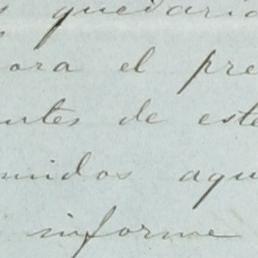 quedaria
ora el pre
ntes de este
midos aqu
informe